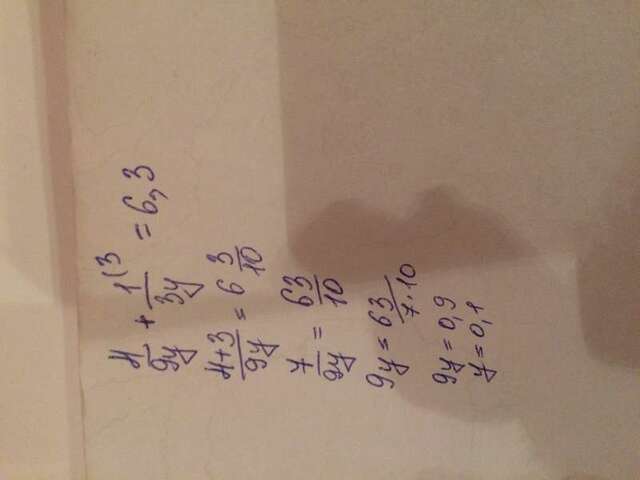 4/9y + 1(3/3y = 6,3
4+3/9y = 6 3/10
7/9y = 63/10
9y = 63/7·10
9y = 0,9
y = 0,1